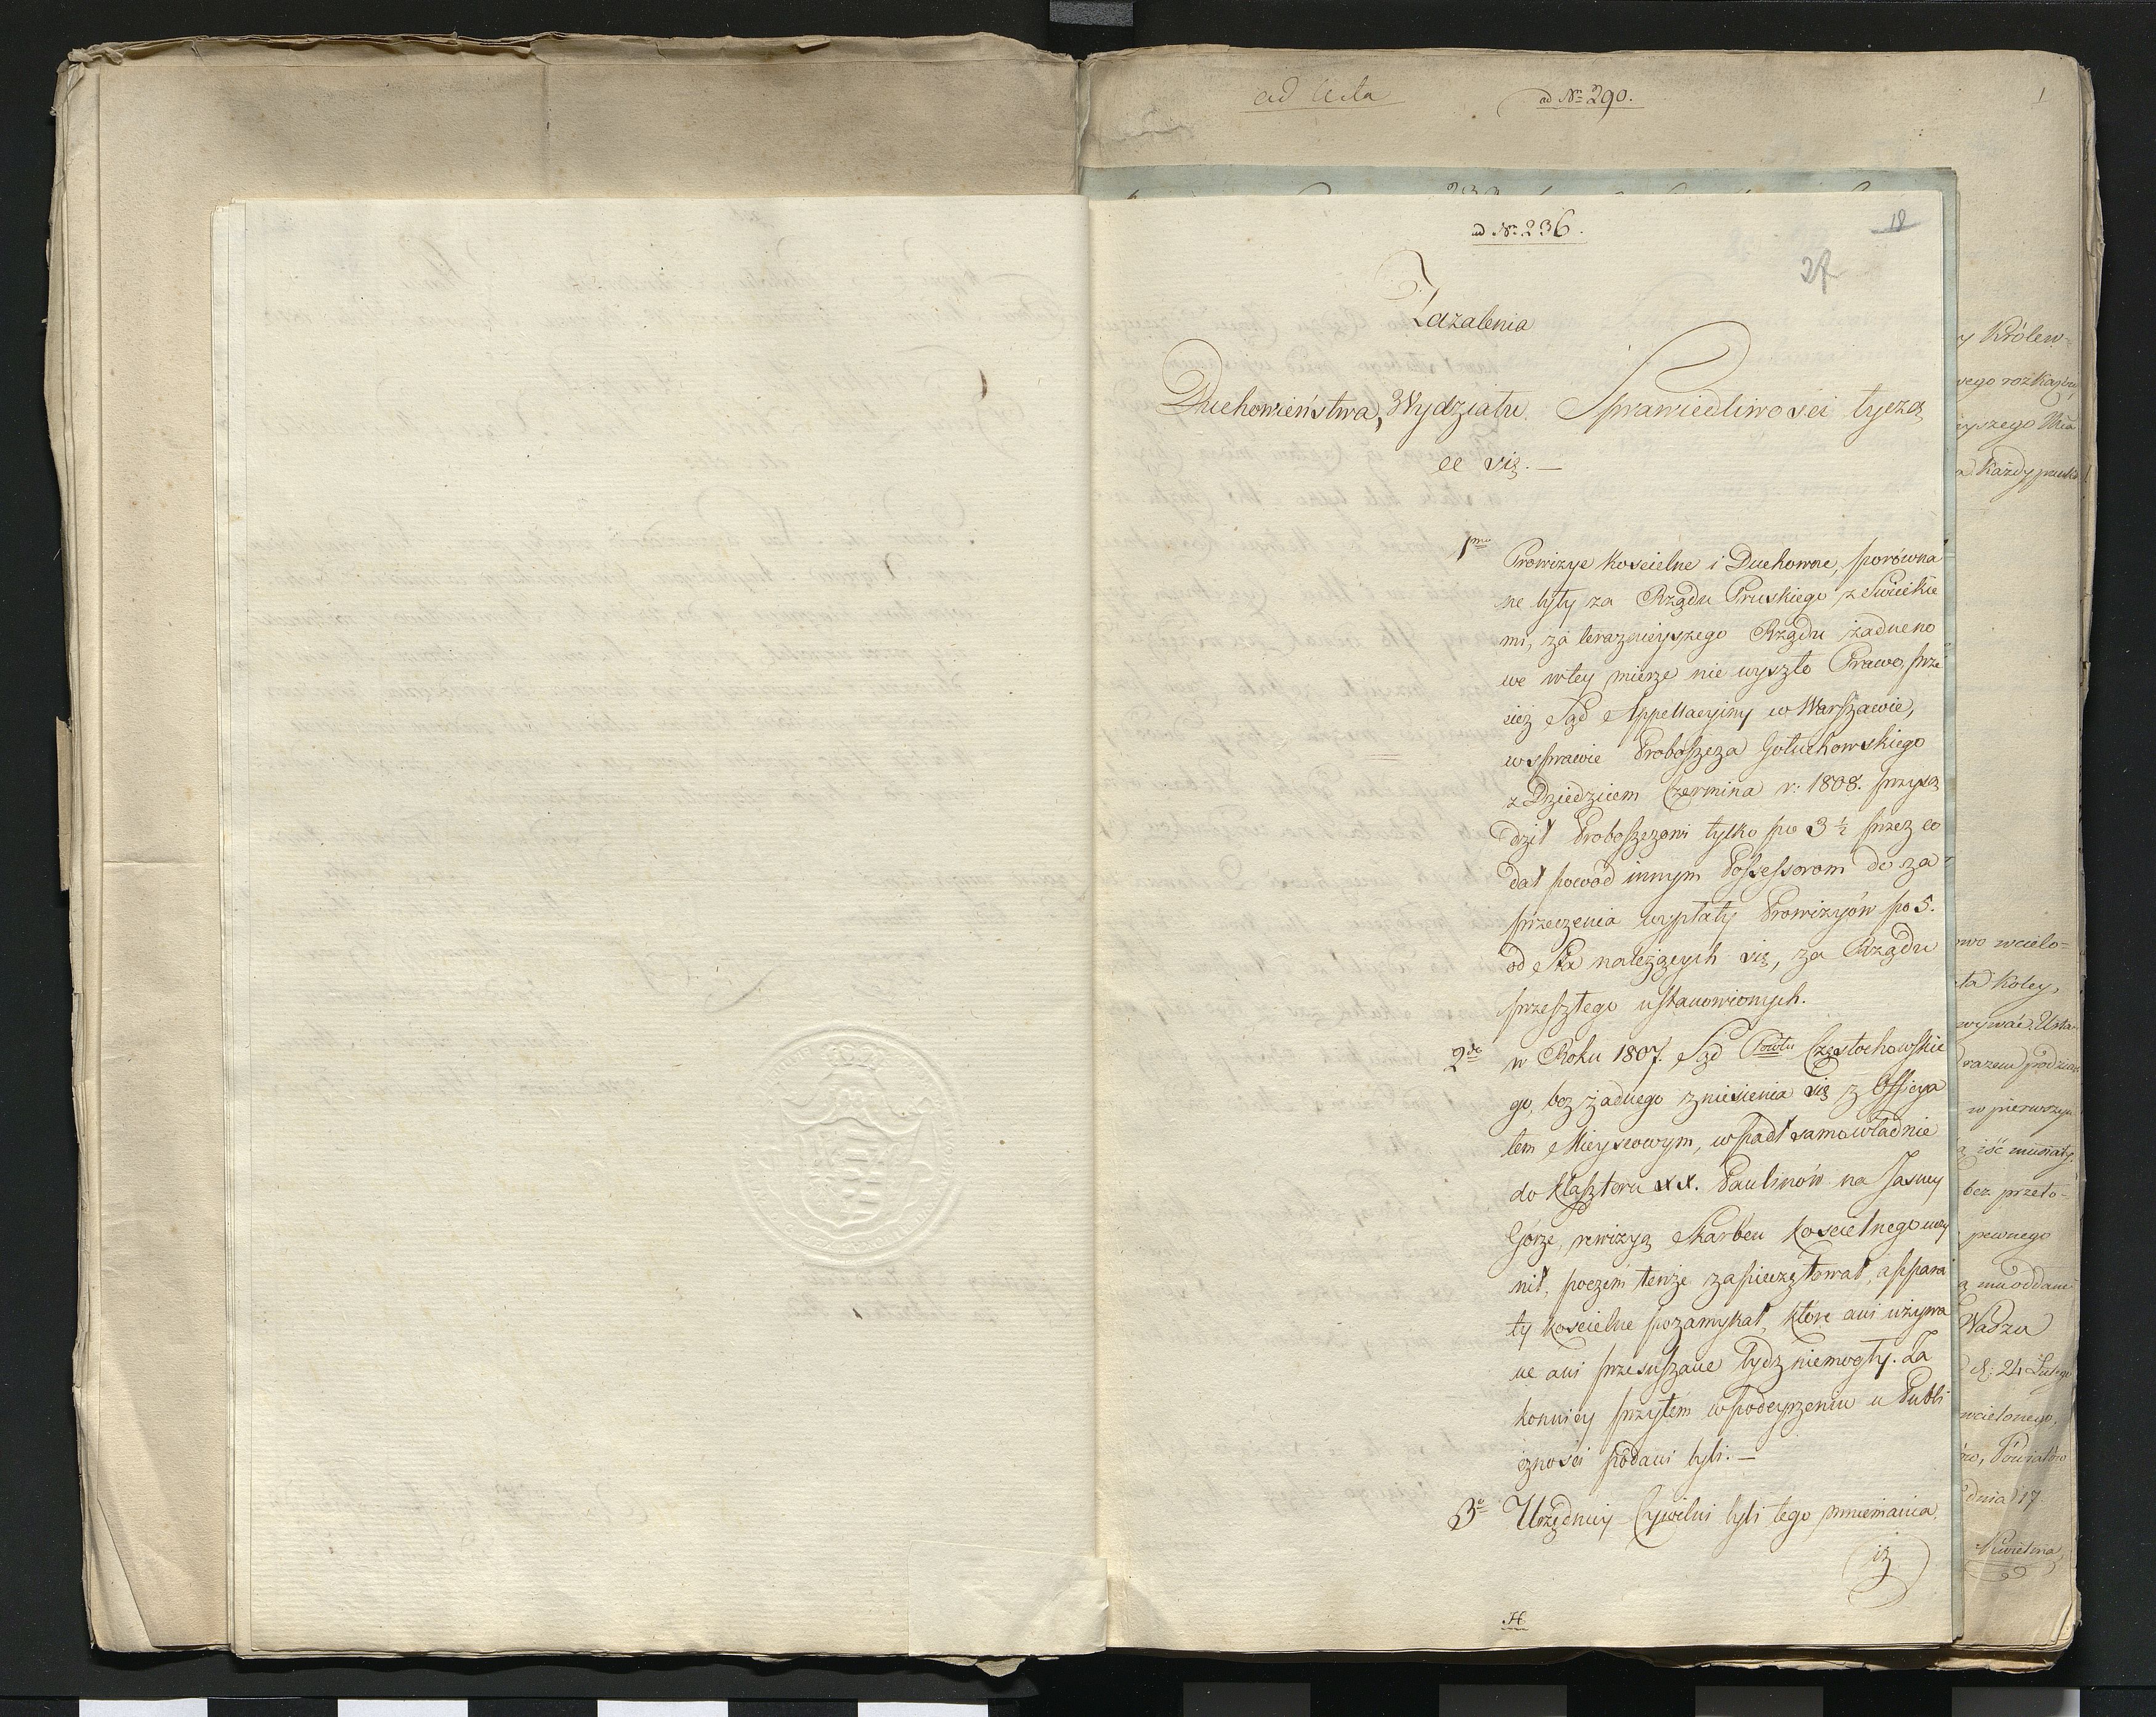 ad Acta
ad No 290.
1
ad No. 236.
18
27
Zażalenia
Duchowieństwa, Wydziału Sprawiedliwości tyczą
ce się. —
1mo Prowizye Koscielne i Duchowne, porówna
ne były za Rządu Pruskiego z Swieckie
mi, za teraznieyszego Rządu żadne no
we w tey mierze nie wyszło Prawo, prze
cież Sąd Appellacyiny w Warszawie,
w sprawie Proboszcza Gołuchowskiego
z Dziedzicem Czermina r: 1808. przysą
dził Proboszczowi tylko po 3 ½ przez co
dał powód innym Possessorom do za
przeczenia wypłaty Prowizyów po 5.
od Sta należących się, za Rządu
przeszłego ustanowionych.
2do w Roku 1807. Sąd Powtu Częstochowskie
go, bez żadnego zniesienia się z Officya
łem Mieyscowym, wpadł samowładnie
do Klasztoru XX. Paulinów na Jasney
Górze, rewizyą Skarbcu Koscielnego uczy
nił, poczem tenże zapieczętował, appara
ty koscielne pozamykał, które ani używa
ne ani przesuszane bydz niemogły. Za
konnicy przytem w podeyrzeniu u Publi
cznosci podani byli. —
3o Urzędnicy Cywilni byli tego mniemania
iż
H
y Królew=
wego rozkazu,
yszego
Każdy
owo wcielo=
ta Koley,
wywać
razem
w pierwszym
iść musiały.
bez przeło-
pewnego
mu oddane
Wadzu
d: 24 Lutego
wcielonego,
Powiatów
dnia 17
Kwietnia